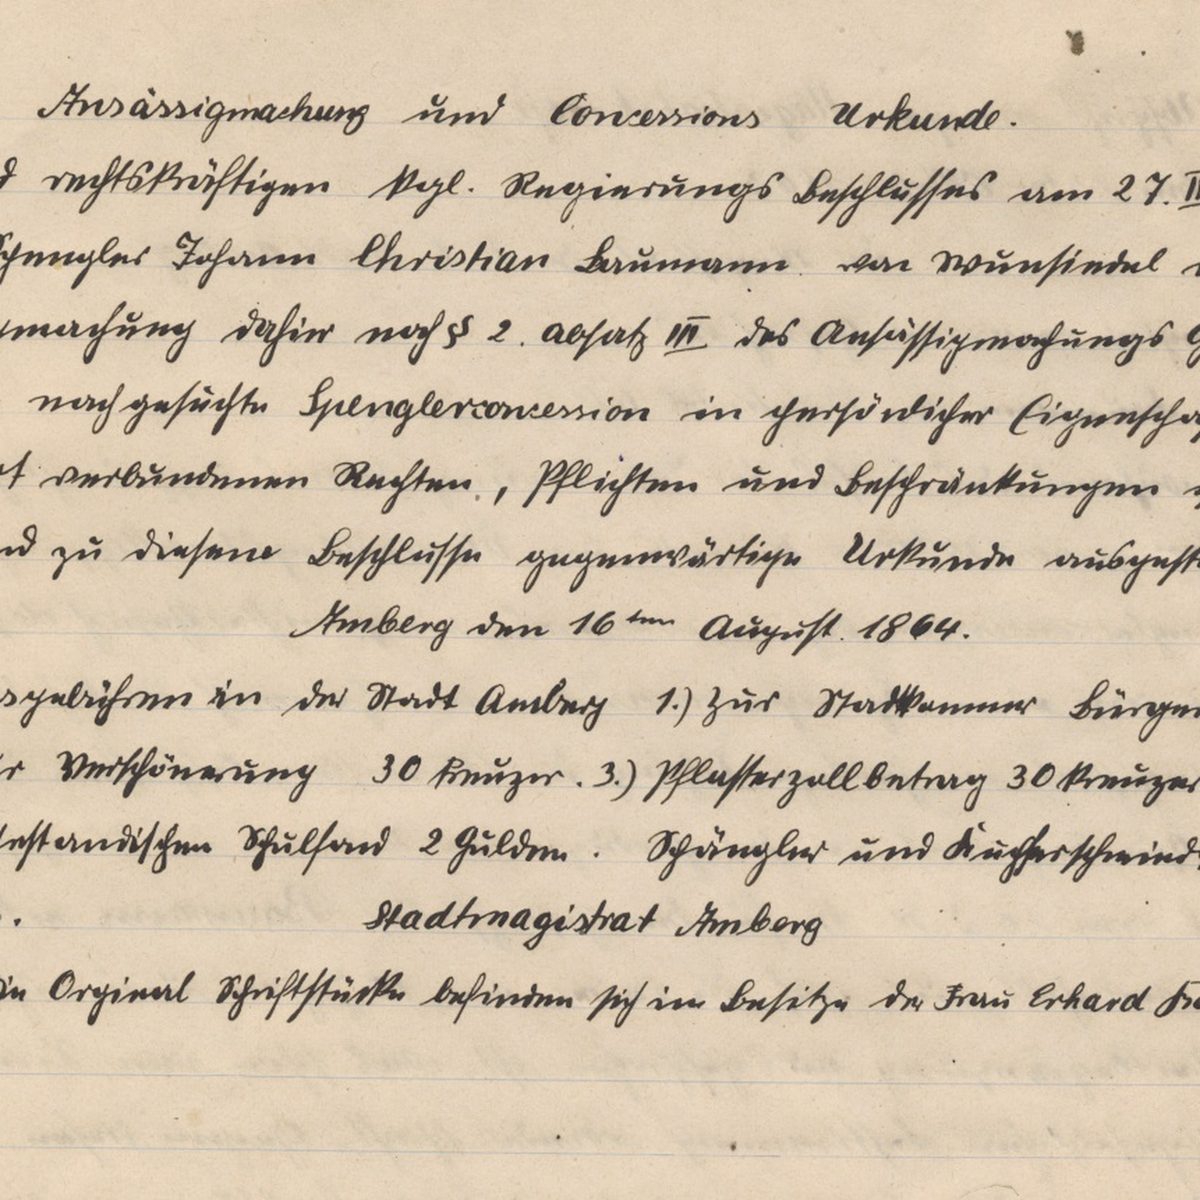 Ansässigmachung und Concessions Urkunde.
d rechtskräftigen kgl. Regierungs Beschlusses am 27. II
Spengler Johann Christian Baumann von Wunsiedel
machung dahier nach § 2. absatz III des Ansässigmachungs G
nachgesuchte Spenglerconcession in persönlicher Eigenscha
t verbundenen Rechten, Pflichten und Beschränkungen
nd zu diesem Beschlusse gegenwärtige Urkunde ausgest
Amberg den 16ten August. 1864.
sgebühren in der Stadt Amberg 1.) Zur Stadtkammer Bürger
r Verschönerung 30 Kreuzer. 3.) Pflasterzollbetrag 30 Kreuzer
testandischen Schulfond 2 Gulden. Schängler und Kupferschmied
. Stadtmagistrat Amberg
in Orginal Schriftstücke befinden sich im Besitze der Frau Erhard